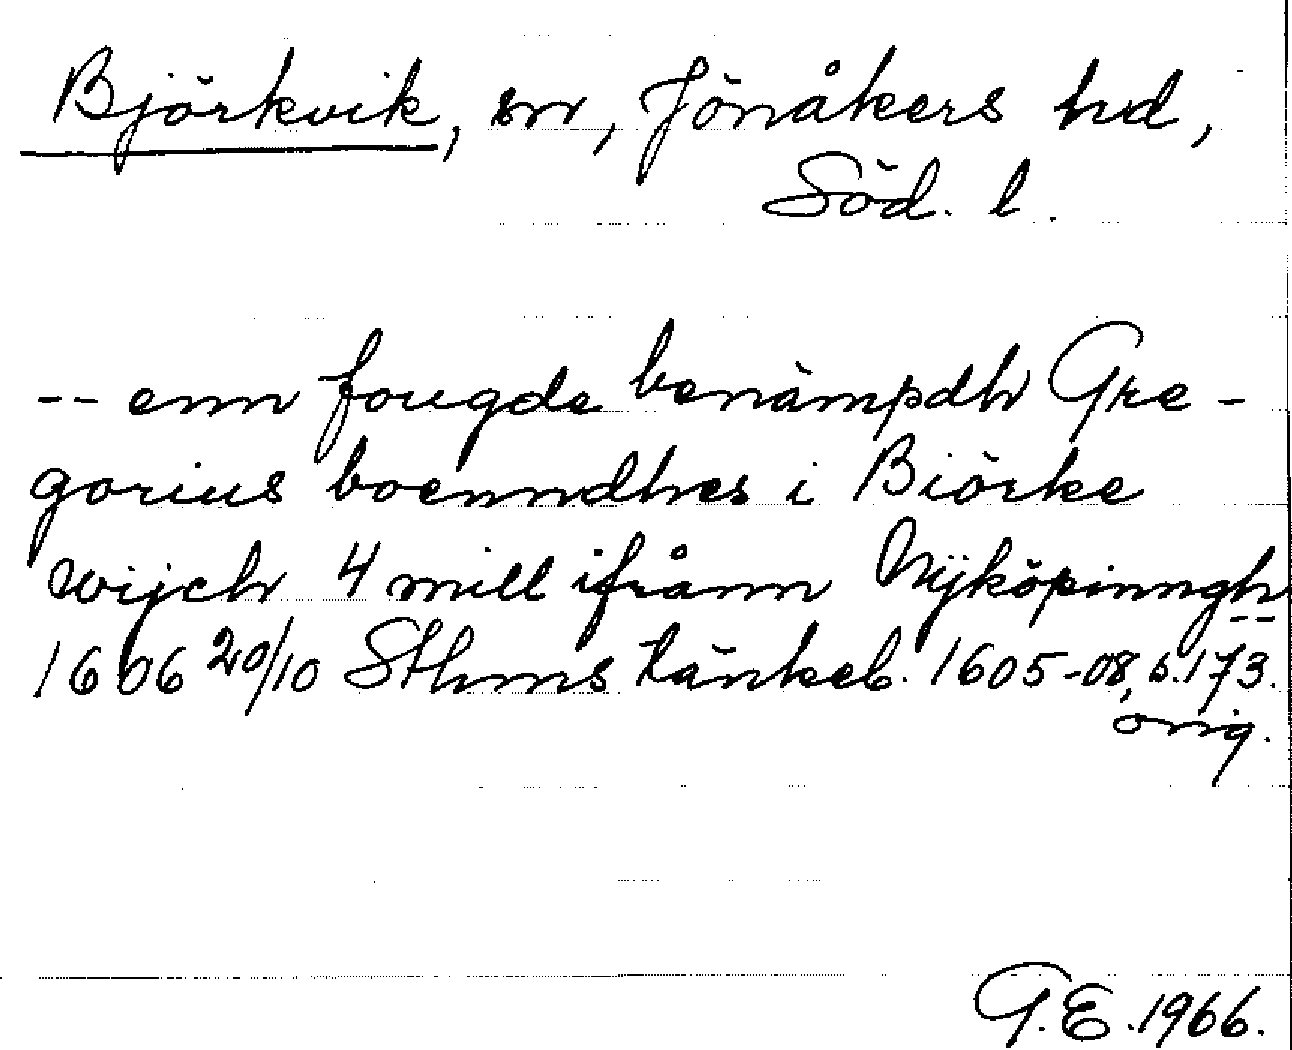 Björkvik, sn, Jönåkers hd,
Söd. l.
-- enn fougde benämpdh Gre-
gorius boenndhes i Biörke
wijch 4 mill ifrånn Nyköpinngh
--
1606 20/10 Sthms tänkeb. 1605-08, s. 173.
orig.
G.E. 1966.